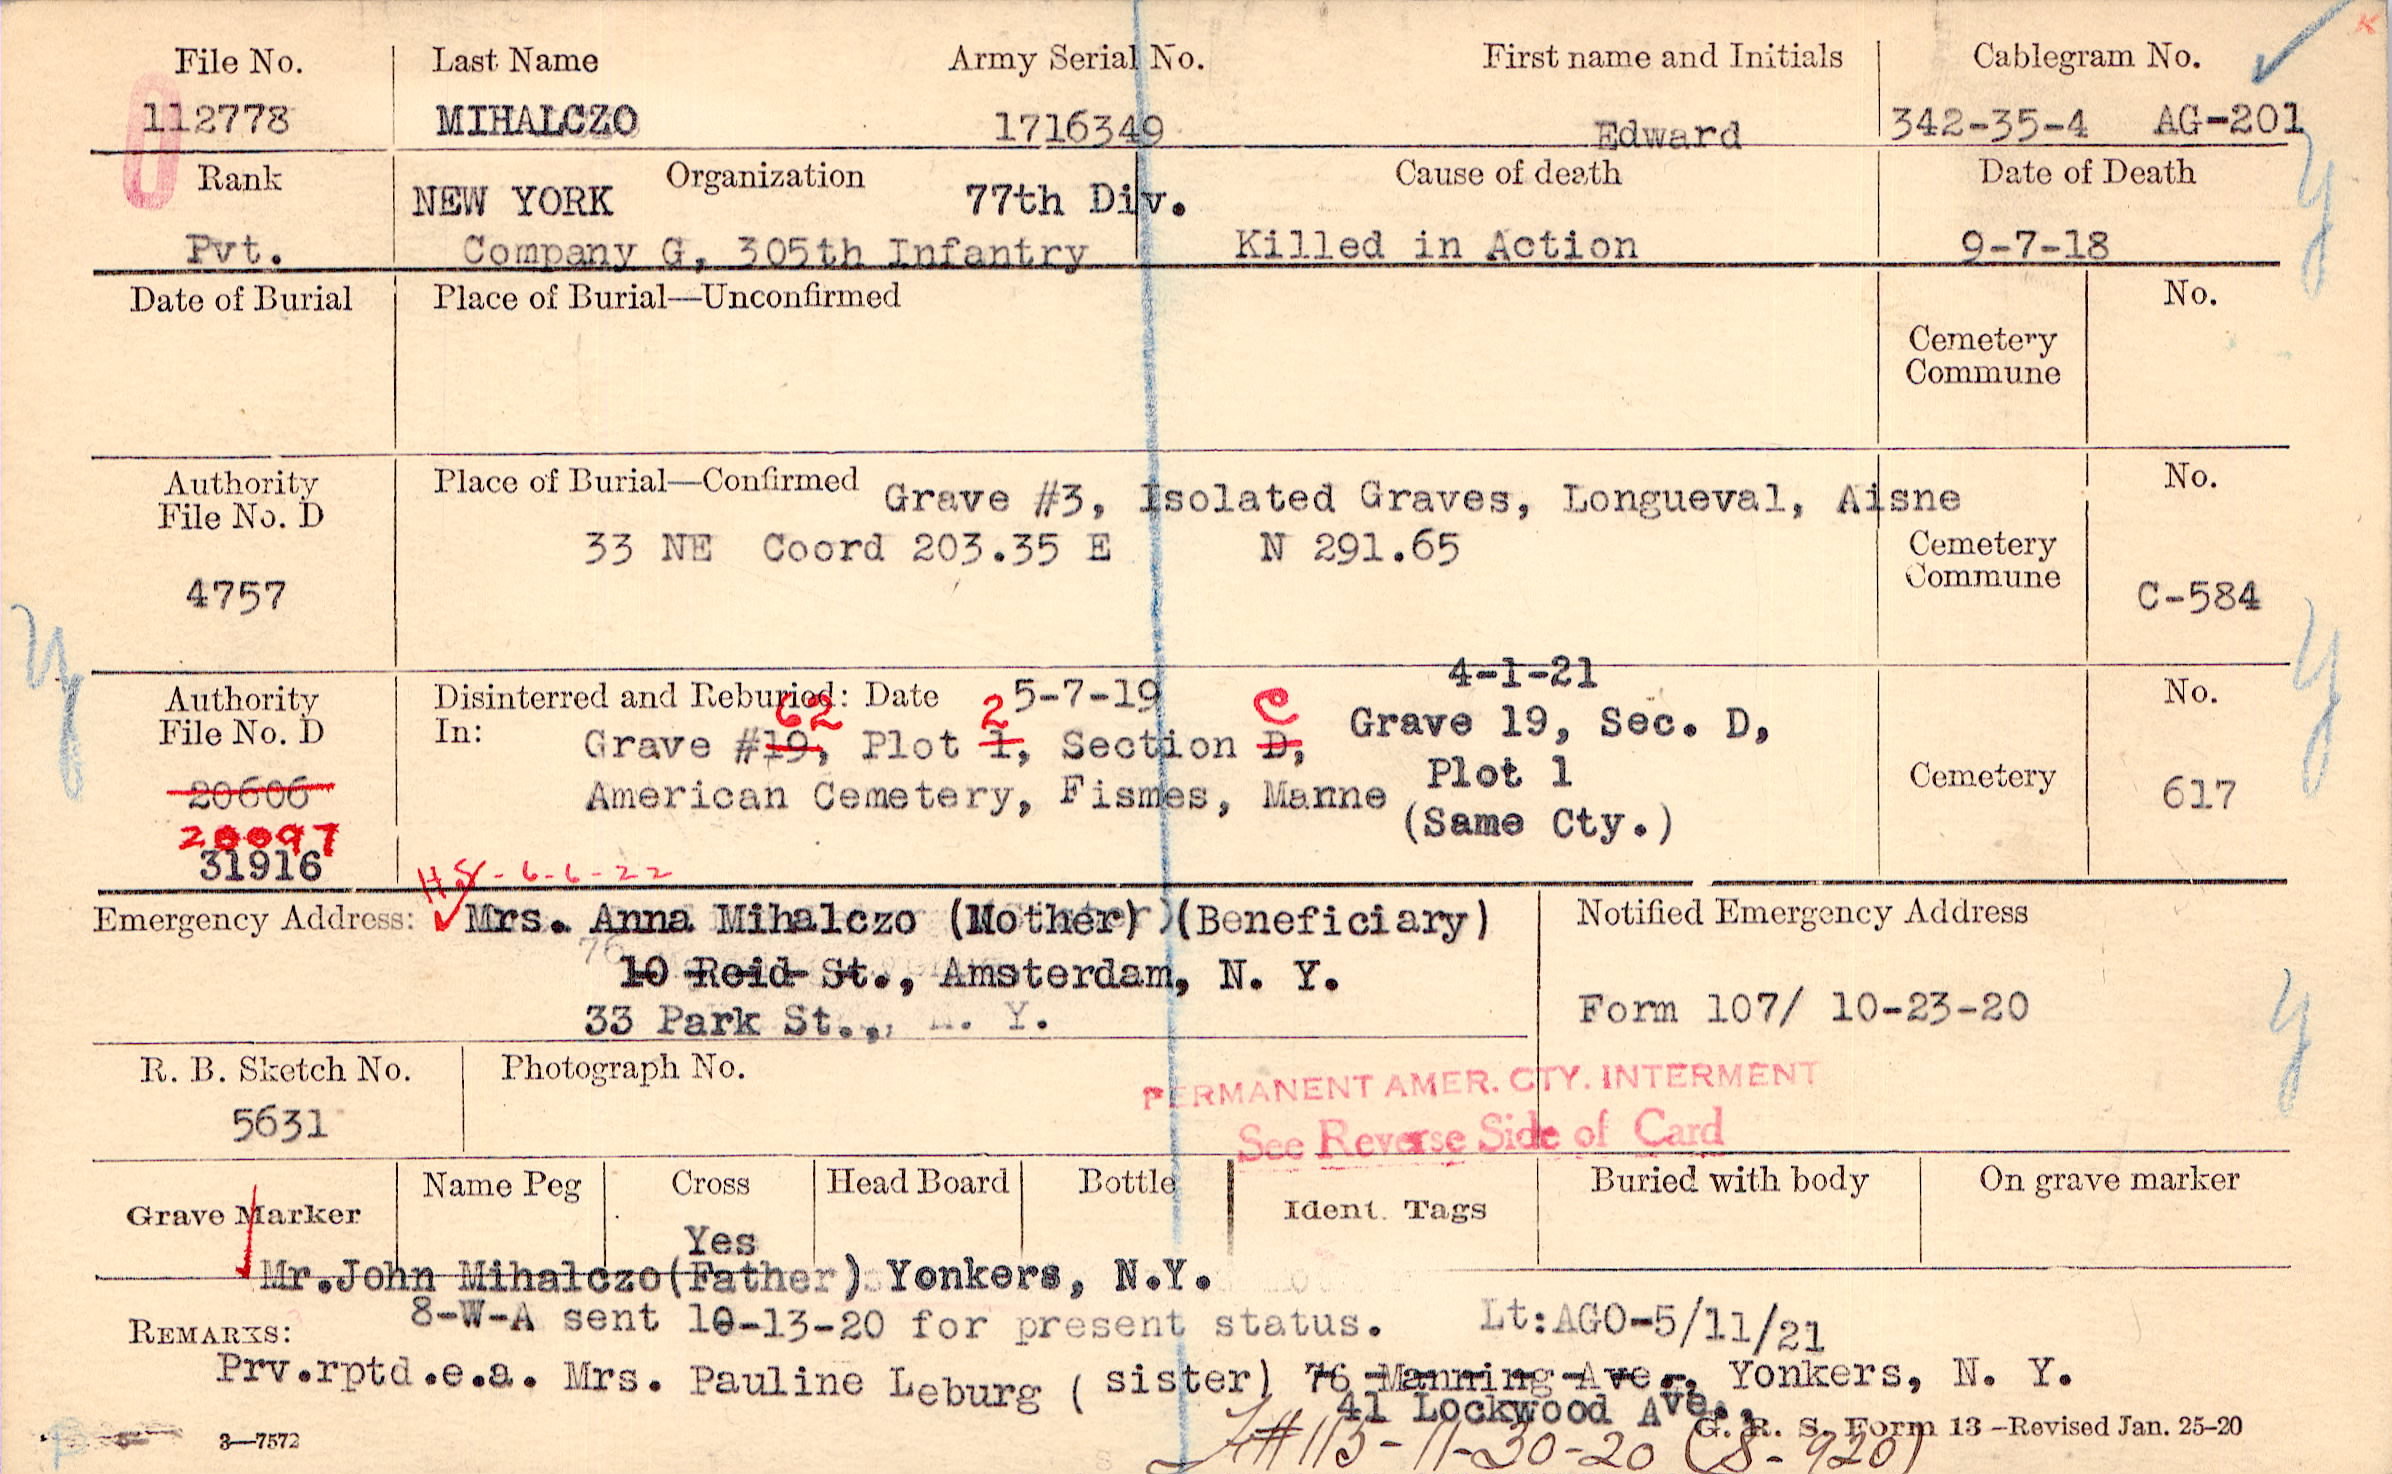 File No. Last Name Army Serial No. First name and Initials Cablegram No.
112778 MIHALCZO 1716349 Edward 342-35-4 AG-201
Rank Organization Cause of death Date of Death
NEW YORK 77th Div.
Pvt. Company G, 305th Infantry Killed in Action 9-7-18
Date of Burial Place of Burial—Unconfirmed No.
Cemetery
Commune
Authority Place of Burial—Confirmed Grave #3, Isolated Graves, Longueval, Aisne No.
File No. D
33 NE Coord 203.35 E N 291.65 Cemetery
Commune
4757 C-584
4-1-21
Authority Disinterred and Reburied: Date 5-7-19 No.
62 2 C
File No. D In: Grave #19, Plot 1, Section D, Grave 19, Sec. D,
Plot 1 Cemetery
20606 American Cemetery, Fismes, Marne 617
(Same Cty.)
20097
31916
6-6-22
Emergency Address: Mrs. Anna Mihalczo (Mother) (Beneficiary) Notified Emergency Address
76
10 Reid St., Amsterdam, N. Y.
33 Park St., N. Y. Form 107/ 10-23-20
R. B. Sketch No. Photograph No.
PERMANENT AMER. CTY. INTERMENT
5631 See Reverse Side of Card
Grave Marker Name Peg Cross Head Board Bottle Ident. Tags Buried with body On grave marker
Yes
Mr.John Mihalczo(Father) Yonkers, N.Y.
8-W-A sent 10-13-20 for present status. Lt:AGO-5/11/21
REMARKS:
Prv.rptd.e.a. Mrs. Pauline Leburg (sister) 76 Manning Ave., Yonkers, N. Y.
41 Lockwood Ave.,
3—7572 G. R. S. Form 13 —Revised Jan. 25-20
#113-11-30-20 (8-920)